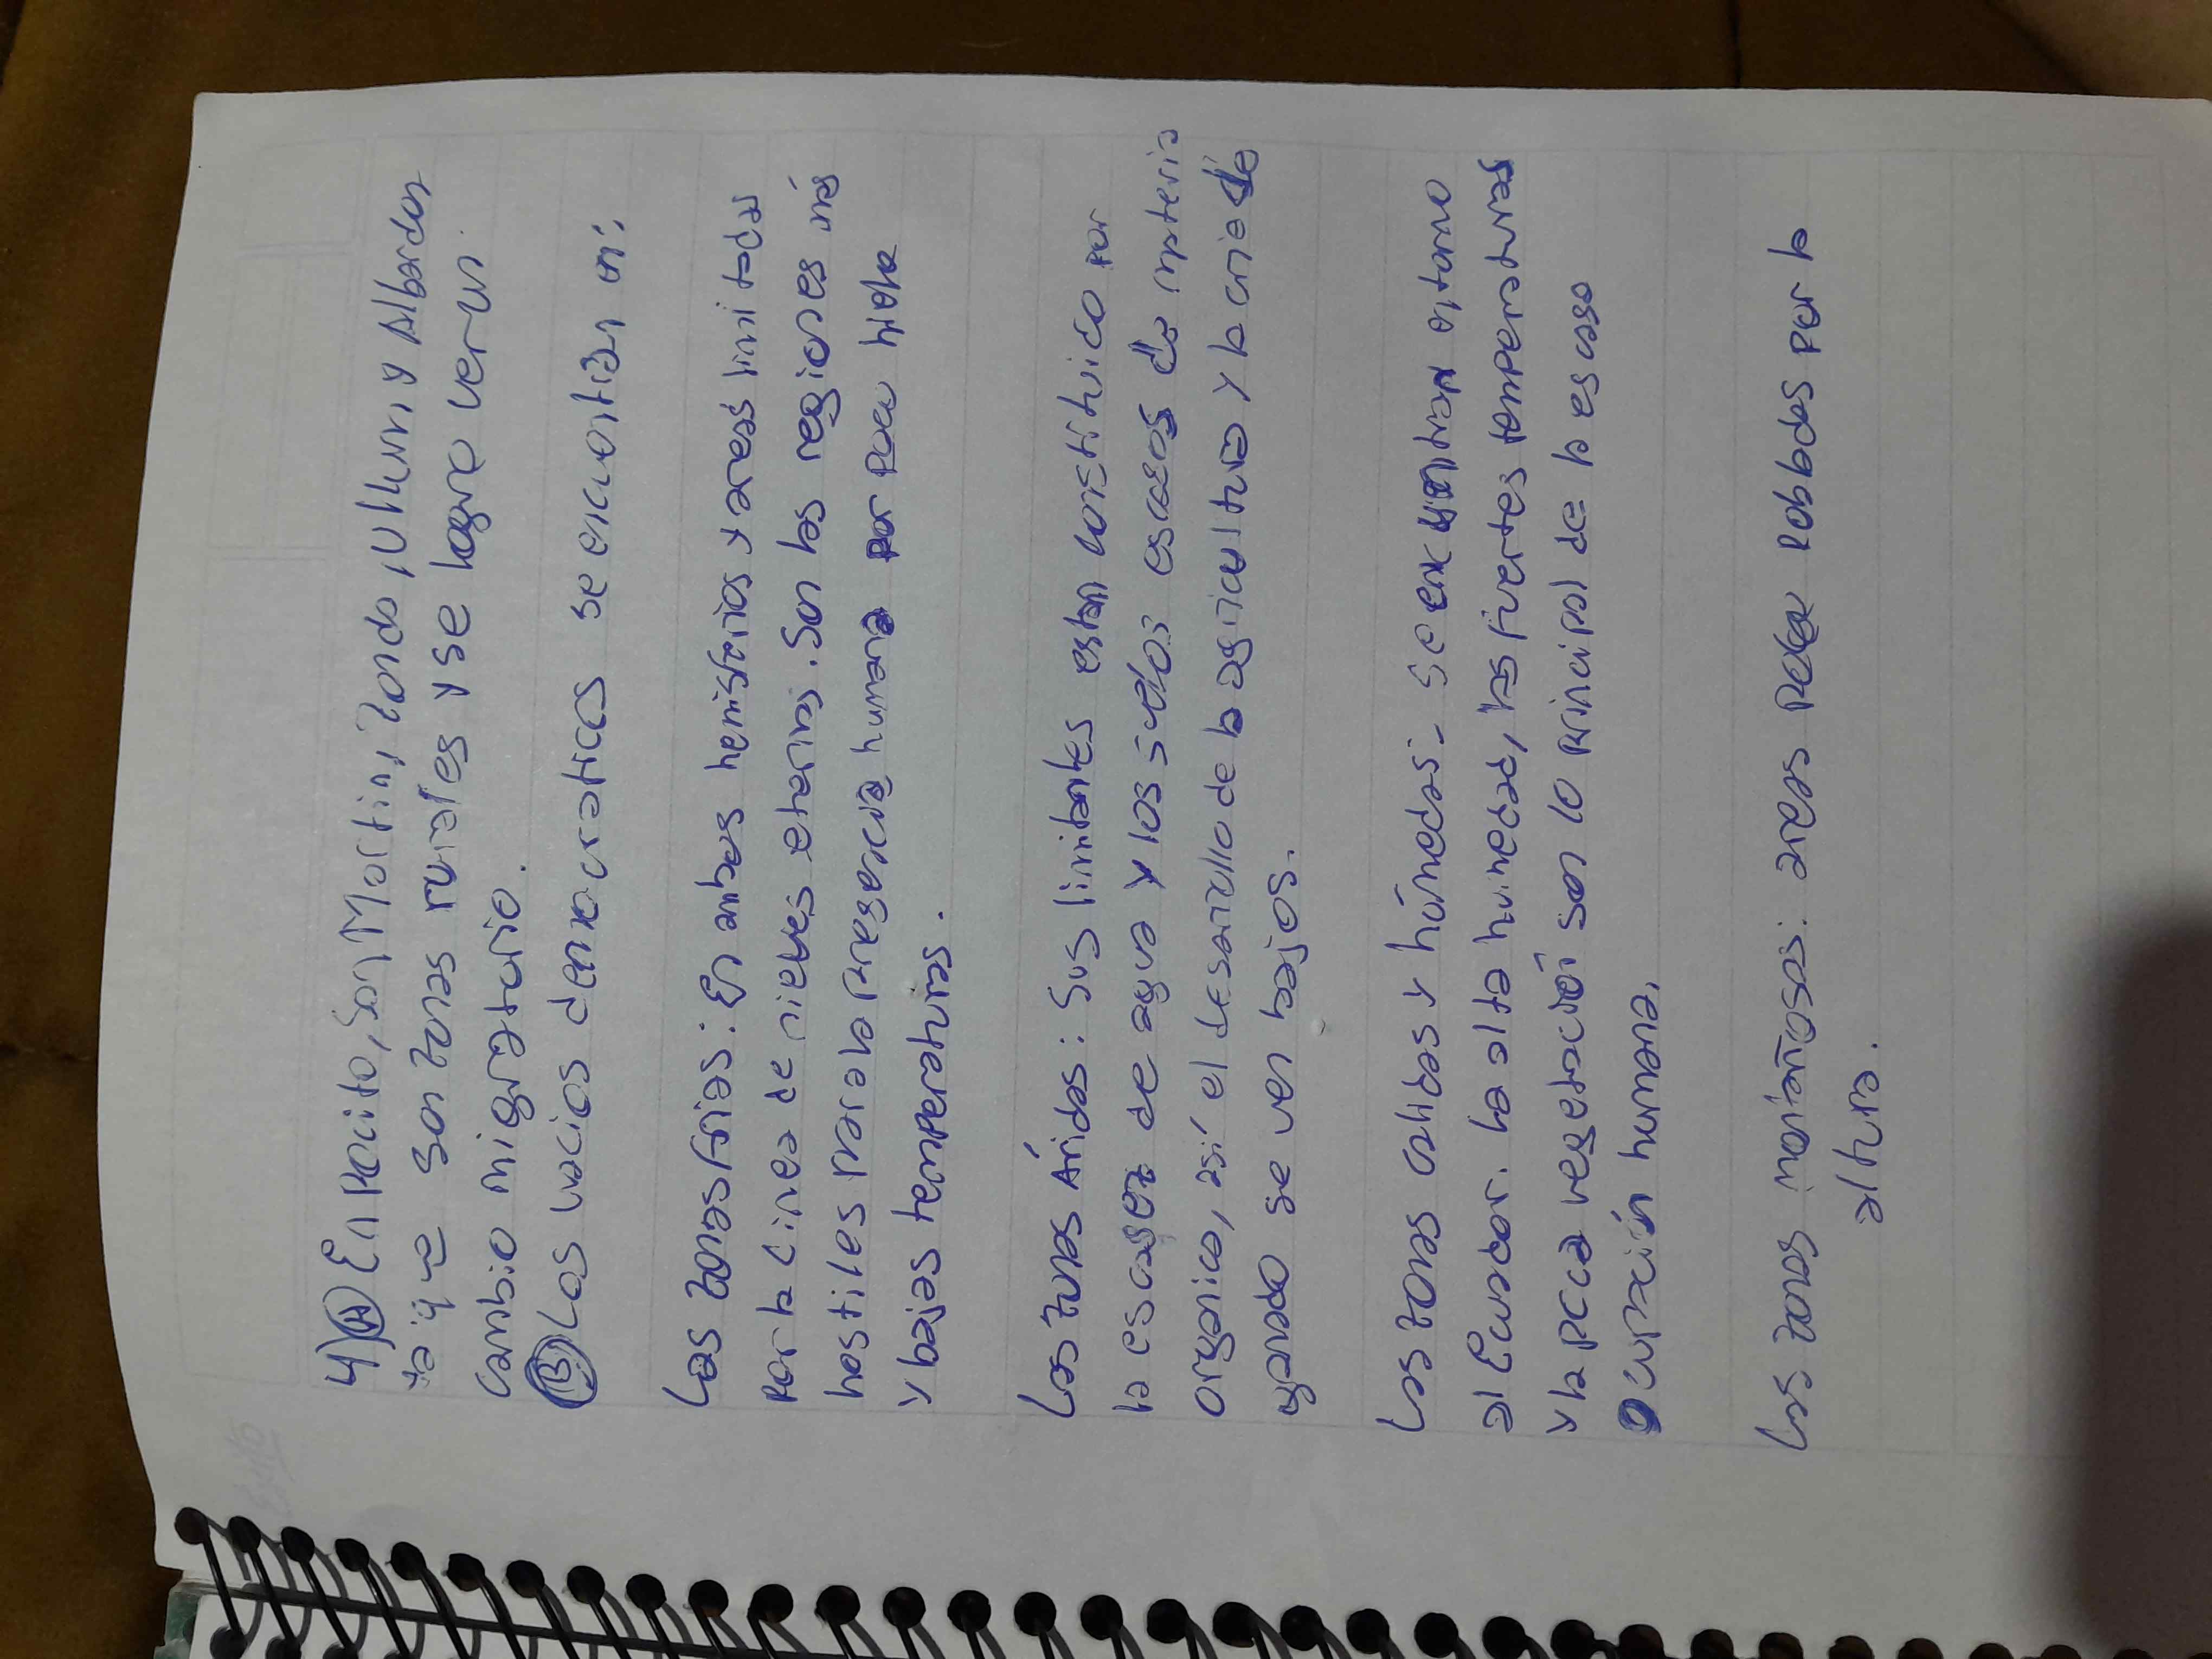 4) A En Pocito, San Martin, Zonda, Ullum y Albardon
ya que son zonas rurales y se logra ver un
cambio migratorio.
B Los vacios democraticos se encuentran en:
Las zonas frias: En ambos hemisferios y areas limitadas
por la linea de nieves eternas. Son las regiones más
hostiles para la presencia humana por poca
y bajas temperaturas.
Las zonas Áridas: Sus limitantes estan constituido por
la escasez de agua y los suelos escasos de materia
organica, así el desarrollo de la agricultura y la cria de
ganado se ven bajos.
Las zonas calidas y húmedas: Se encuentran entorno
al Ecuador. La alta humedad, las fuertes temperaturas
y la poca vegetación son lo principal de la escasa
ocupación humana.
Las zonas montañosas: areas pobladas por la
altura.